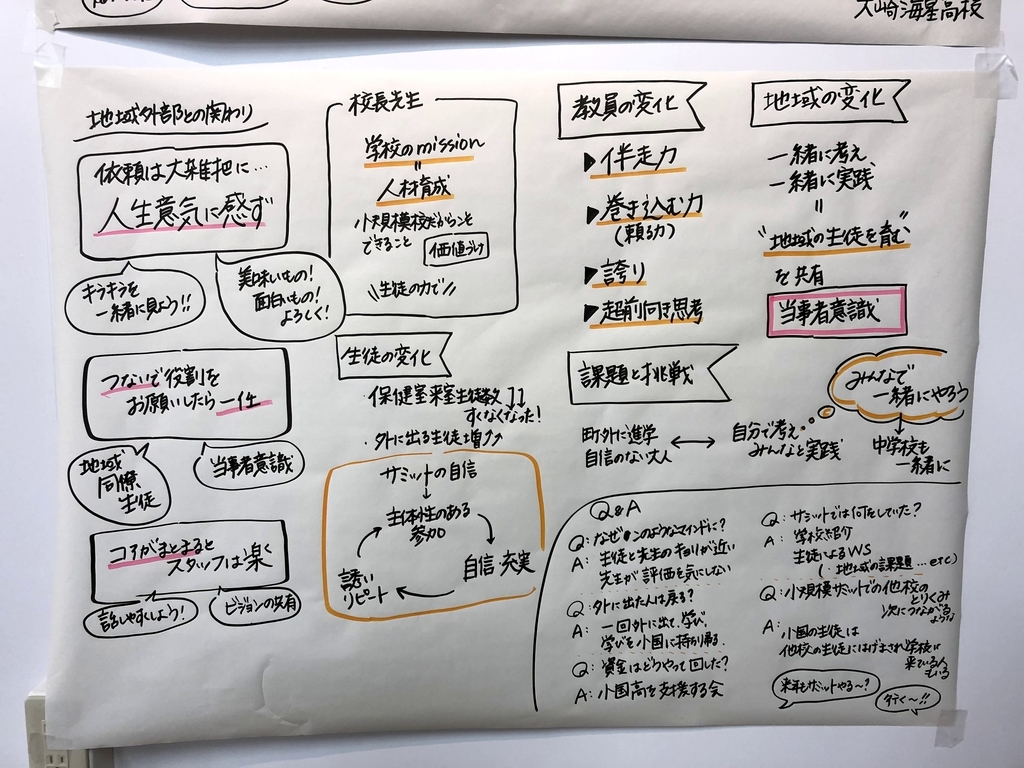 大崎海星高校
地域外部との関わり
依頼は大雑把に…
人生意気に感ず
キラキラを
一緒に見よう!!
美味いもの!
面白いもの!
よろしく!
つないで役割を
お願いしたら一任
地域
同僚
生徒
当事者意識
コアがまとまると
スタッフは楽
話しやすくしよう!
ビジョンの共有
校長先生
学校のmission
=
人材育成
小規模校だからこそ
できること
価値づけ
\\生徒の力で//
生徒の変化
・保健室来室生徒数↓↓
すくなくなった!
・外に出る生徒増↑↗
サミットの自信
↓
主体性のある
参加
自信・充実
誘い
リピート
教員の変化
▶伴走力
▶巻き込む力
(頼る力)
▶誇り
▶超前向き思考
地域の変化
一緒に考え、
一緒に実践
=
"地域の生徒を育む"
を共有
当事者意識
課題と挑戦
町外に進学
自信のない大人
↔
自分で考え
みんなと実践
みんなで
一緒にやろう
中学校も
一緒に
Q&A
Q: なぜ のようなマインドに?
A: 生徒と先生のキョリが近い
先生が評価を気にしない
Q: 外に出た人は戻る?
A: 一回外に出て、学び、
学びを小国に持ち帰る
Q: 資金はどうやって回した?
A: 小国高を支援する会
Q: サミットでは何をしていた?
A: 学校紹介
生徒によるWS
(・地域の課題 …etc)
Q: 小規模サミットでの他校の
とりくみ
次につながるような
A: 小国の生徒は
他校の生徒にはげまされ学校に
来ている人
もいる
来年もサミットやる〜?
行く〜!!